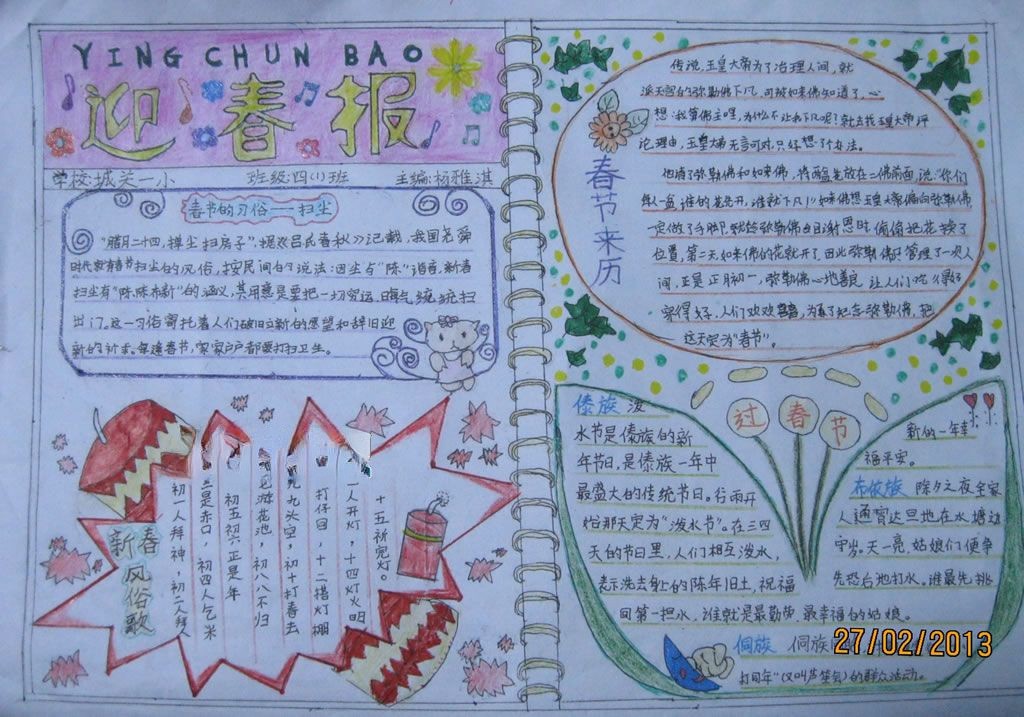 YING CHUN BAO
迎春报
学校:城关一小 班级:四(1)班 主编:杨雅淇
春节的习俗——扫尘
"腊月二十四,掸尘扫房子",据《吕氏春秋》记载,我国尧舜
时代就有春节扫尘的风俗,按民间的说法:因尘与"陈"谐音,新春
扫尘有"除陈布新"的涵义,其用意是要把一切穷运、晦气统统扫
出门。这一习俗寄托着人们破旧立新的愿望和辞旧迎
新的祈求。每逢春节,家家户户都要打扫卫生。
新春风俗歌
初一人拜神,初二人拜人
三是赤口,初四人乞米
初五初六正是年
游花池,初八八不归
九头空,初十打春去
打仔目,十二搭灯棚
人开灯,十四灯火明
十五祈完灯。
春节来历
传说,玉皇大帝为了治理人间,就
派天宫的弥勒佛下凡,可被如来佛知道了,心
想:我算佛主哩,为什么不让我下凡呢?就去找玉皇大帝评
论理由,玉皇大帝无言可对,只好想了个办法。
他请了弥勒佛和如来佛,将两盆花放在二佛前面,说:"你们
每人一盆,谁的花先开,谁就下凡!"如来佛想玉皇大帝偏向弥勒佛
一定做了手脚,就趁弥勒佛白谢恩时偷偷把花换了
位置,第二天如来佛的花就开了,因此弥勒佛只管理了一次人
间,正是正月初一,弥勒佛心地善良,让人们吃
穿得好,人们欢欢喜喜,为了纪念弥勒佛,把
这天定为"春节"。
过春节
傣族 泼
水节是傣族的新
年节日,是傣族一年中
最盛大的传统节日。谷雨开
始那天定为"泼水节"。在三四
天的节日里,人们相互泼水,
表示洗去身上的陈年旧土,祝福
新的一年幸
福平安。
布依族 除夕之夜全家
人通宵达旦地在水塘边
守岁。天一亮,姑娘们便争
先恐后地打水。谁最先挑
回第一担水,谁就是最勤劳,最幸福的姑娘。
侗族 侗族
打同年"(又叫芦笙会)的群众活动。
27/02/2013